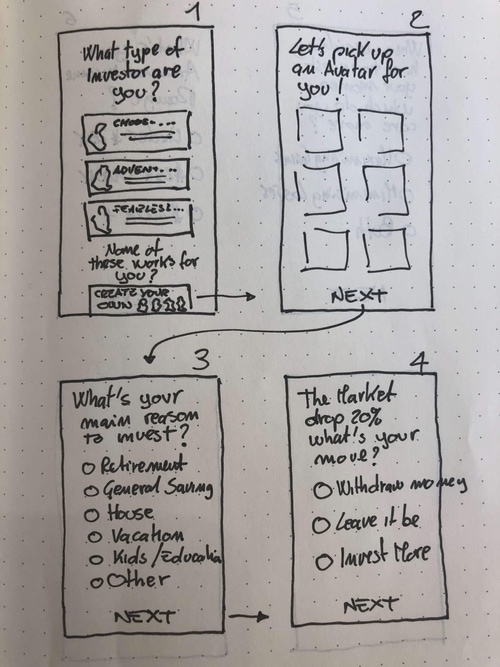 1
What type of
Investor are
you?
ADVEN....
FEARLESS...
None of
these works for
you?
CREATE YOUR
OWN
2
Let's pick up
an Avatar for
you!
NEXT
3
What's your
main reason
to invest?
Retirement
General Saving
House
Vacation
Kids/Education
Other
NEXT
4
The Market
drop 20%
what's your
move?
Withdraw money
Leave it be
Invest More
NEXT